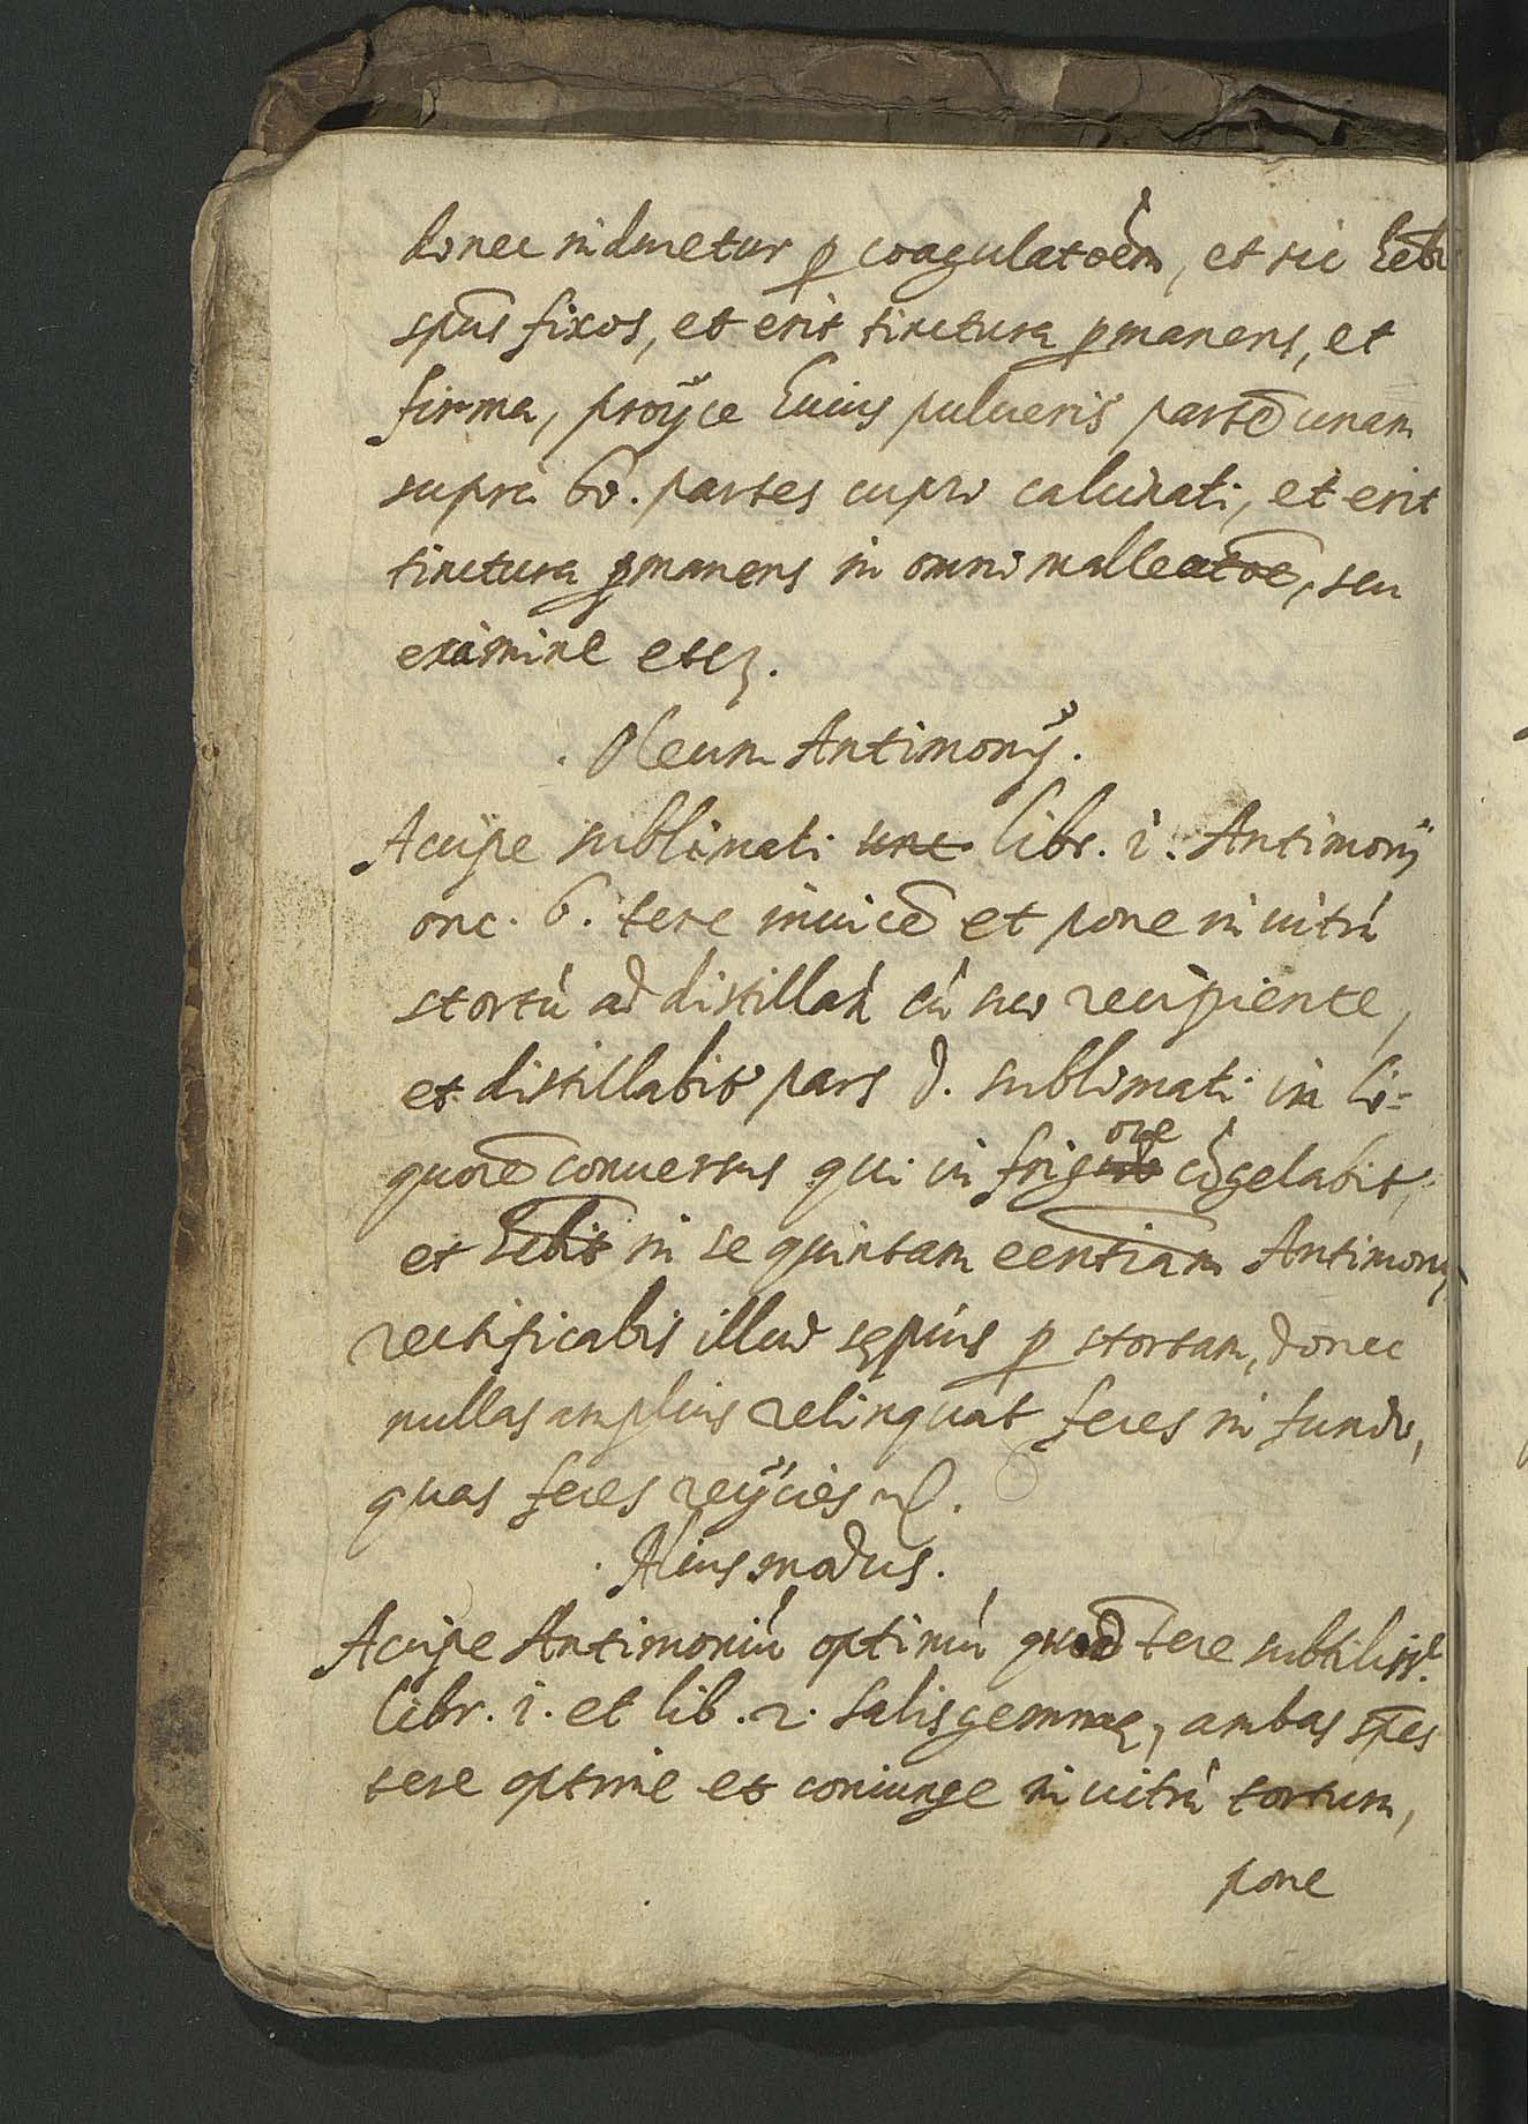 donec induretur p coagulatoem, et sic hebis
spūs fixos, et erit tinctura pmanens, et
firma, proÿce huius pulueris partē unam
supra 60. partes cupri calcinati, et erit
tinctura pmanens in omni malleatoē, seu
examine etc.
. Oleum Antimonÿ .
Accipe sublimati unc. libr. i. Antimonÿ
onc. 6. tere inuicē et pone in uitrū
stortū ad distillandū cū suo recipiente,
et distillabit pars d. sublimati in li=
quorē conuersus qui in frigore cōgelabit,
et hēbit in se quintam eēntiam Antimonÿ
rectificabis illud sępius p stortam, donec
nullas amplius relinquat feces in fundo,
quas feces reÿcies etc.
. Alius modus .
Accipe Antimoniū optimū quod tere subtiliss.e
libr. i. et lib. 2. salis gemmae, ambas spēs
tere optime et coniunge in uitrū tortum,
pone